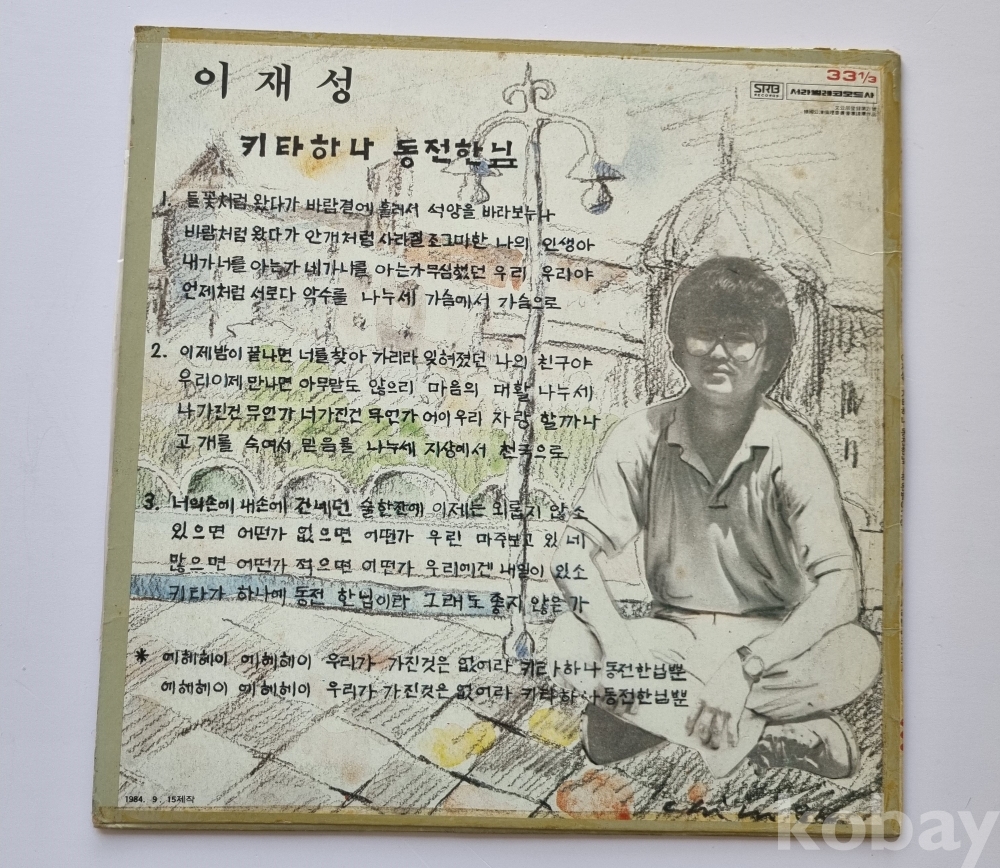 이재성
33 1/3
SRB
RECORDS
서라벌레코오드사
키타하나 동전한닢
1. 들꽃처럼 왔다가 바람결에 흘러서 석양을 바라보누나
바람처럼 왔다가 안개처럼 사라질 조그마한 나의 인생아
내가 너를 아는가 네가 나를 아는가 무심했던 우리 우리야
언제처럼 서로다 악수를 나누세 가슴에서 가슴으로
2. 이제밤이 끝나면 너를 찾아 가리라 잊혀졌던 나의 친구야
우리이제 만나면 아무말도 않으리 마음의 대활 나누세
나가진건 무언가 너가진건 무언가 어이 우리 자랑 할까나
고개를 숙여서 믿음을 나누세 지상에서 천국으로
3. 너의손에 내손에 건네던 술한잔에 이제는 외롭지 않소
있으면 어떤가 없으면 어떤가 우린 마주보고 있네
많으면 어떤가 적으면 어떤가 우리에겐 내일이 있소
키타가 하나에 동전 한닢이라 그래도 좋지 않은가
* 에헤헤이 에헤헤이 우리가 가진것은 없어라 키타하나 동전한닢뿐
에헤헤이 에헤헤이 우리가 가진것은 없어라 키타하나 동전한닢뿐
1984. 9. 15제작
kobay